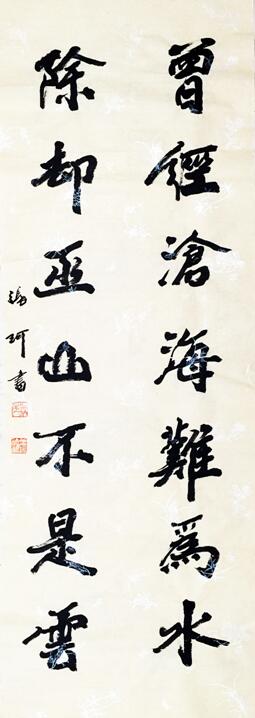 曾經滄海難爲水
除却巫山不是雲
珂書